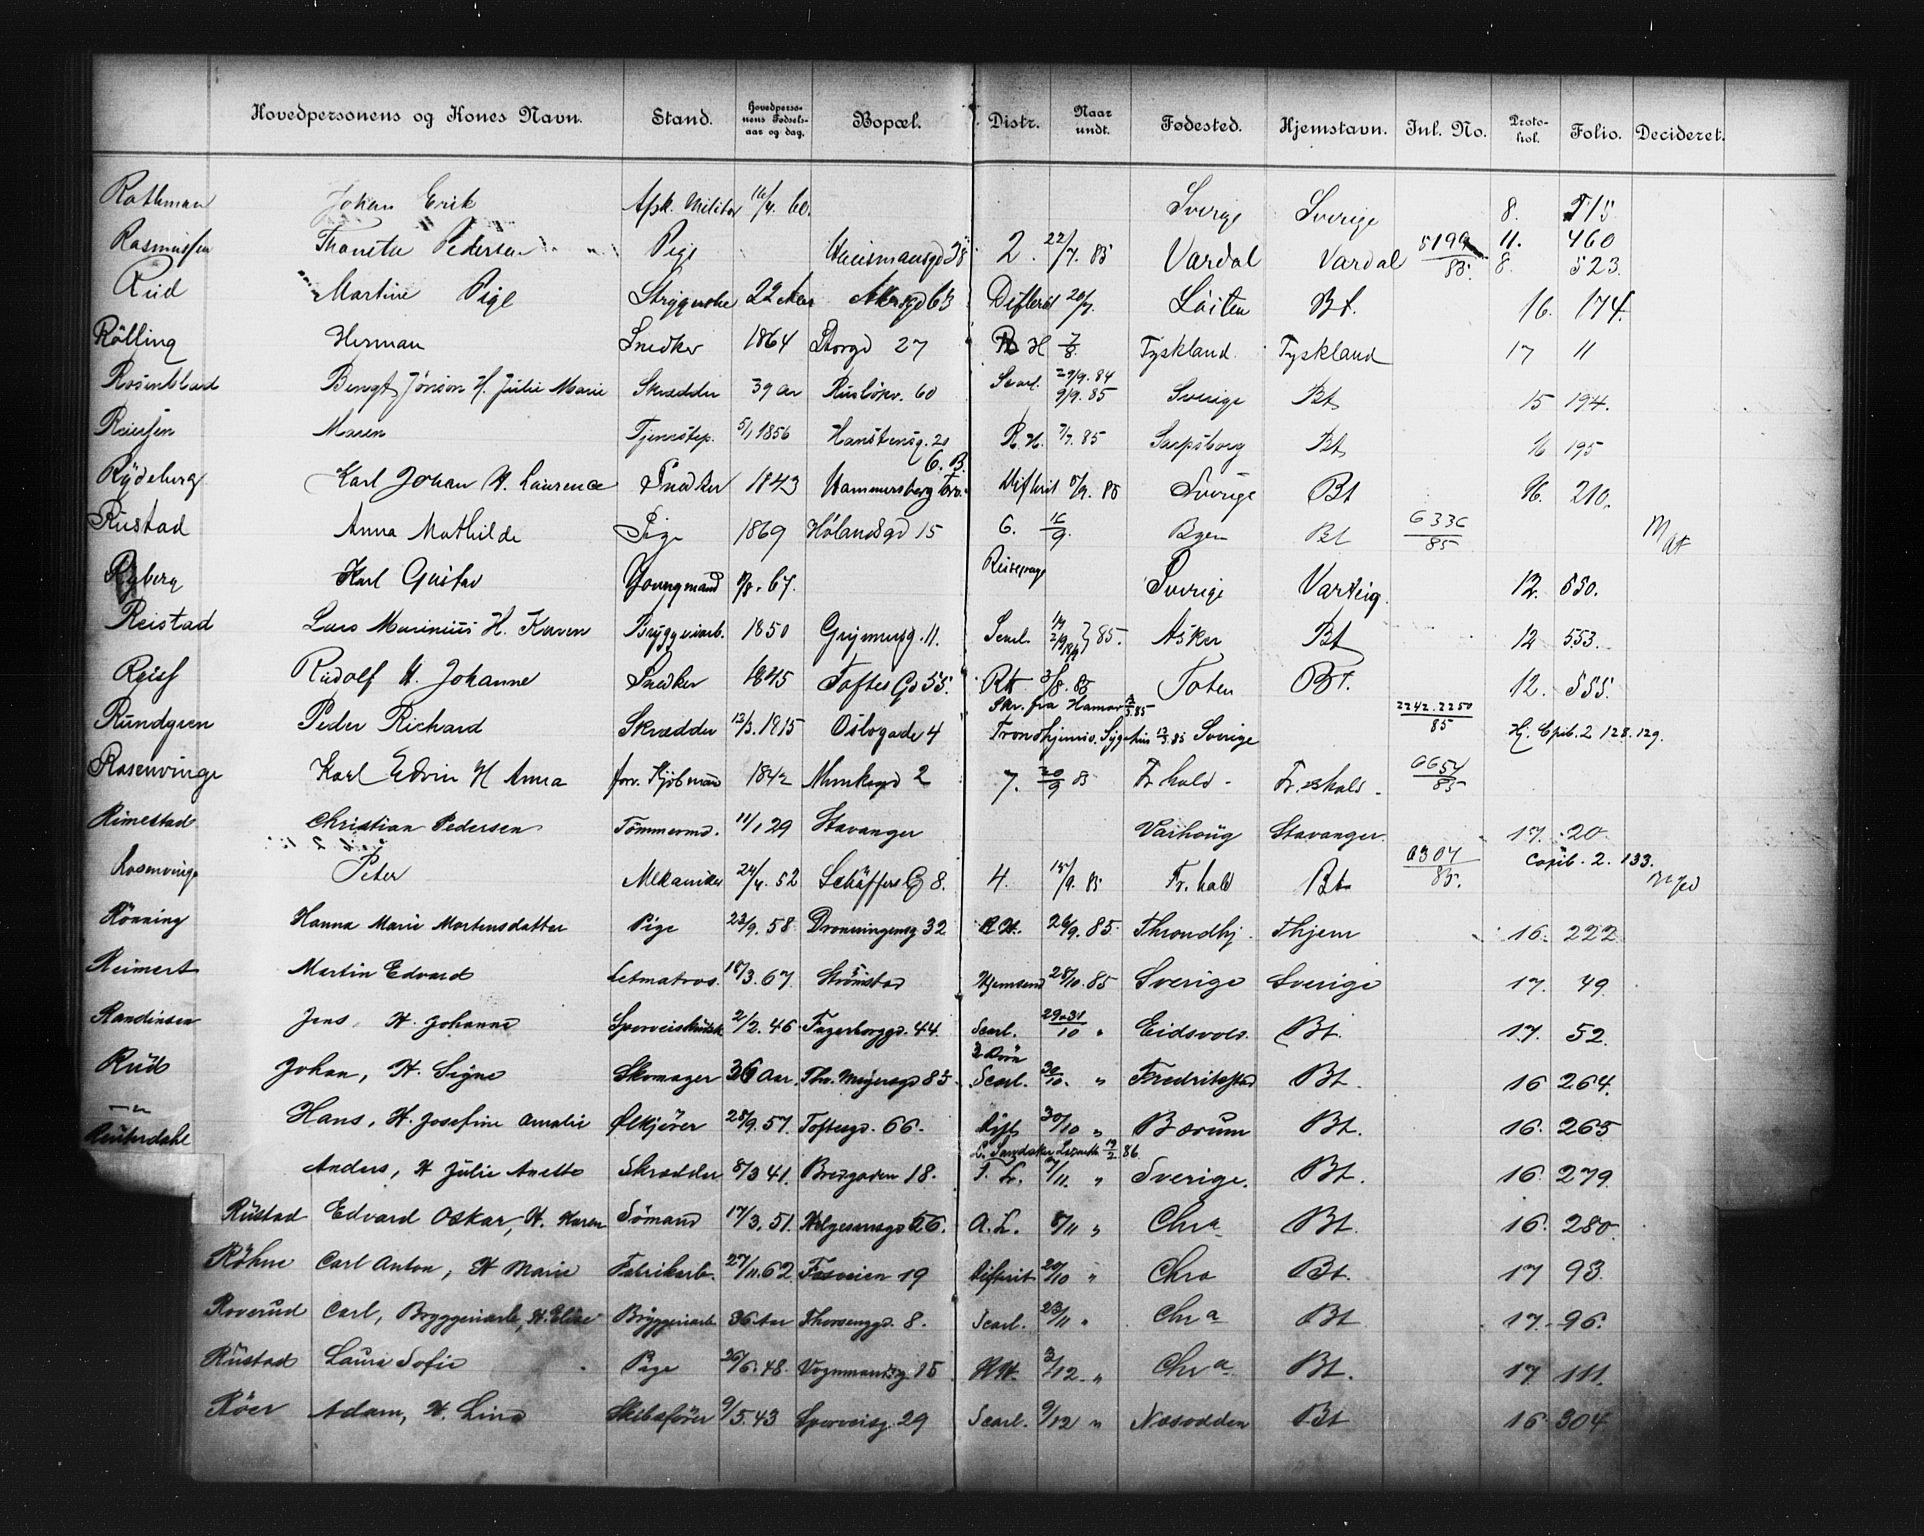 Hovedpersonens og Kones Navn. Stand. Hovedpersonens Fødselsaar og dag. Bopæl. Distr. Naar undt. Fødested. Hjemstavn. Inl. No. Protokol. Folio. Decideret.
Rathman Johan Erik Afsk. Militær 16/4. 60. Sverige Sverige 8. 515
Rasmussen Pedersen Pige 38 2. 22/7. 85 Vardal Vardal 5199/85. 11. 460
8. 523.
Rud Martine Pige Strygerske 22 Aar Akersgd 63 Difterit 20/7. Löiten Bt. 16. 174.
Rölling Herman Snedker 1864 Storgd 27 R H 7/8. Tyskland. Tyskland 17 11
Rosenblad Bengt Jönson H. Julie Marie Skrædder 39 aar Rusløkv. 60 Scarl. 29/9. 84 9/9. 85 Sverige Bt 15 194.
Reiersen Maren Tjenestep. 5/1 1856 Hanstensg. 20 R. H. 7/7. 85 Sarpsborg Bt 16 195
Rydeberg Karl Johan H. Laurence Snedker 1843 Hammersborg Torv. 6. B. Difterit 5/9. 85 Sverige Bt 16. 210.
Rustad Anna Mathilde Pige 1869 Hølandsgd 15 6. 16/9. Byen Bt 6336/85
Ryberg Karl Gustav Youngmand 9/8. 67. Reisepenge Sverige Varteig. 12. 550.
Reistad Lars Marinius H. Karen Bryggeriarb. 1850 Grimersg. 11. Scarl. 85. Asker Bt 12 553.
Rudolf H. Johanne Snedker 1845 Toftes Gd 55. RH 3/8. 85 Toten Bt. 12. 555.
Rundgren Peder Richard Skrædder 12/3. 1815 Oslogade 4 Skr. fra Hamar 85 2242.2250/85
Trondhjems. Sygehus 85 Sverige Copib. 2 128. 129.
Rosenvinge Karl Edvin H Anna forv. Kjøbmand 1842 Munkegd 2 7. 20/9 85 Fr hald. Fr.hald. 6654/85
Rimestad Christian Pedersen Tömmermd. 11/1 29 Stavanger Varhoug Stavanger 17. 20.
Rosenvinge Peter Mekaniker 24/4. 52 Schäffers G 8. 4. 15/9. 85 Fr. hald Bt 6304/85. Copib. 2. 133.
Rönning Hanna Marie Mortensdatter Pige 23/9. 58. Dronningensg 32 R H. 26/9. 85. Throndhj. Thjem 16. 222
Reimert Martin Edvard Letmatros. 18/3. 67. Strømstad Hjemsend 28/10. 85 Sverige Sverige 17. 49.
Randinsen Jens, H. Johanne Sporveiskusk 2/2. 46. Fagerborggd. 44. Scarl. 29 & 31/10 " Eidsvold. Bt. 17. 52.
Rud Johan, H. Signe Skomager 36 Aar. Thv. Meyersgd 85. 3 Børn Scarl. 30/10. " Fredrikstad Bt. 16 264.
— " — Hans, H. Josefine Amalie Ølkjører 28/9. 57. Toftesgd. 66. Dift. 30/10 " Bærum Bt. 16. 265
Reuterdahl Anders, H Julie Anette Skrædder 8/3 41. Bredgaden 18. T. L. 7/11. " Sverige. Bt. 16. 279.
Rustad Edvard Oskar, H. Karen Sömand 17/3. 51. Helgesensgd 56. A. L. 8/11 " Chra Bt. 16. 280.
Röhne Carl Anton, H Marie Fabrikarb. 27/11. 62. Fosveien 19 Difterit 20/10 " Chra Bt. 17 93.
Roverud Carl, Bryggeriarb, H. Elise Bryggeriarb 36 Aar Thorsenggd. 8. Scarl. 23/11 " Chra Bt 17. 96.
Rustad Laura Sofie Pige 26/6. 48. Vognmandsg. 15 R H. 2/12. " Chra Bt. 17. 111.
Röer Adam, H. Lina Skibsfører 9/5. 43 Sporveisg. 29 Scarl. 9/12 " Næsodden Bt 16. 304.